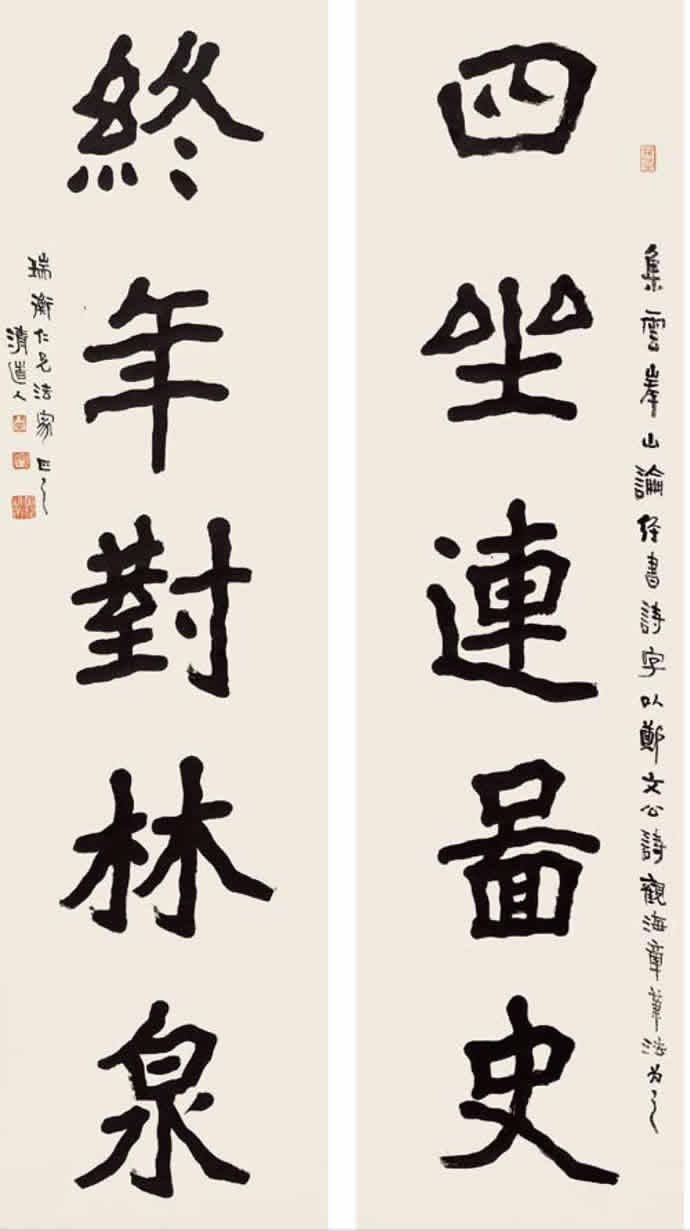 四坐連啚史
集雲峯山論经書詩字以鄭文公詩觀海章筆法为之
終年對林泉
瑞衡仁兄法家正之
清道人